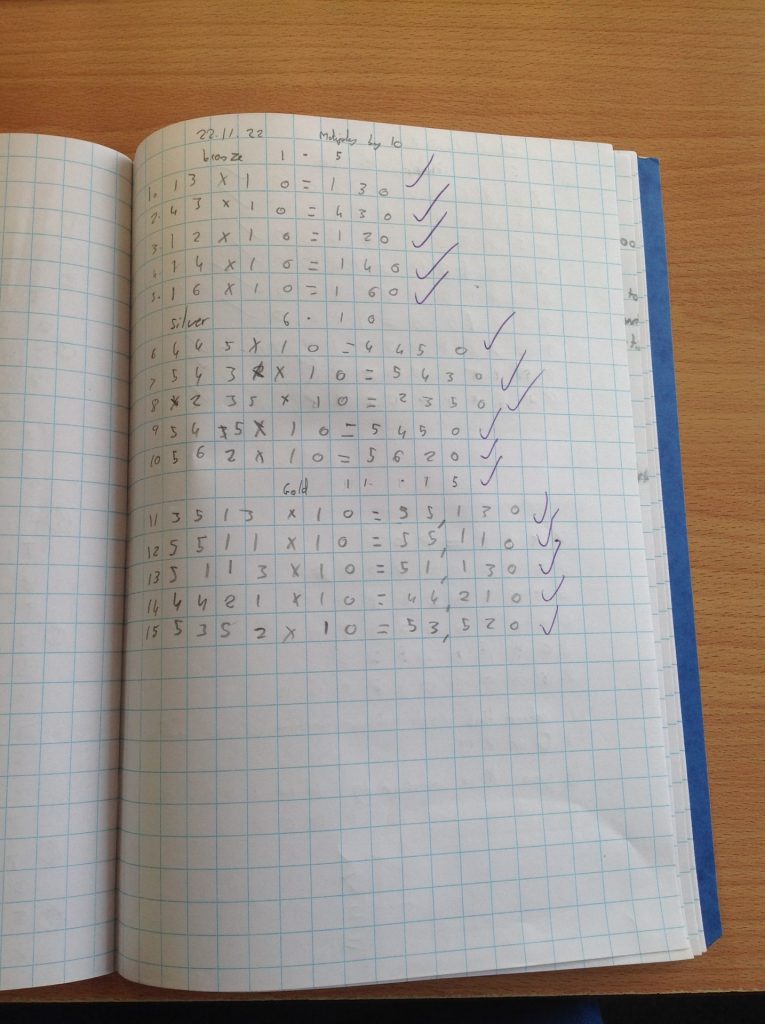 22.11.22 Multiples by 10
bronze 1 - 5
1. 13 x 10 = 130
2. 43 x 10 = 430
3. 12 x 10 = 120
4. 14 x 10 = 140
5. 16 x 10 = 160
silver 6 - 10
6 445 x 10 = 4450
7 543 x 10 = 5430
8 235 x 10 = 2350
9 545 x 10 = 5450
10 562 x 10 = 5620
Gold 11 - 15
11 3513 x 10 = 35,130
12 5511 x 10 = 55,110
13 5113 x 10 = 51,130
14 4421 x 10 = 44,210
15 5352 x 10 = 53,520